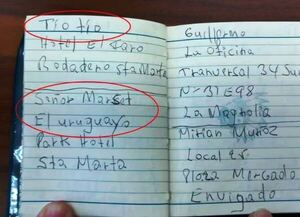 Tío tío
Hotel El Faro
Rodadero Sta Marta
Señor Marset
El uruguayo
Park Hotel
Sta Marta
Guillermo
La Oficina
Tranversal 34 Sur
N=31E98
La Magnolia
Mirian Muñoz
Local
Plaza Mercado
Envigado